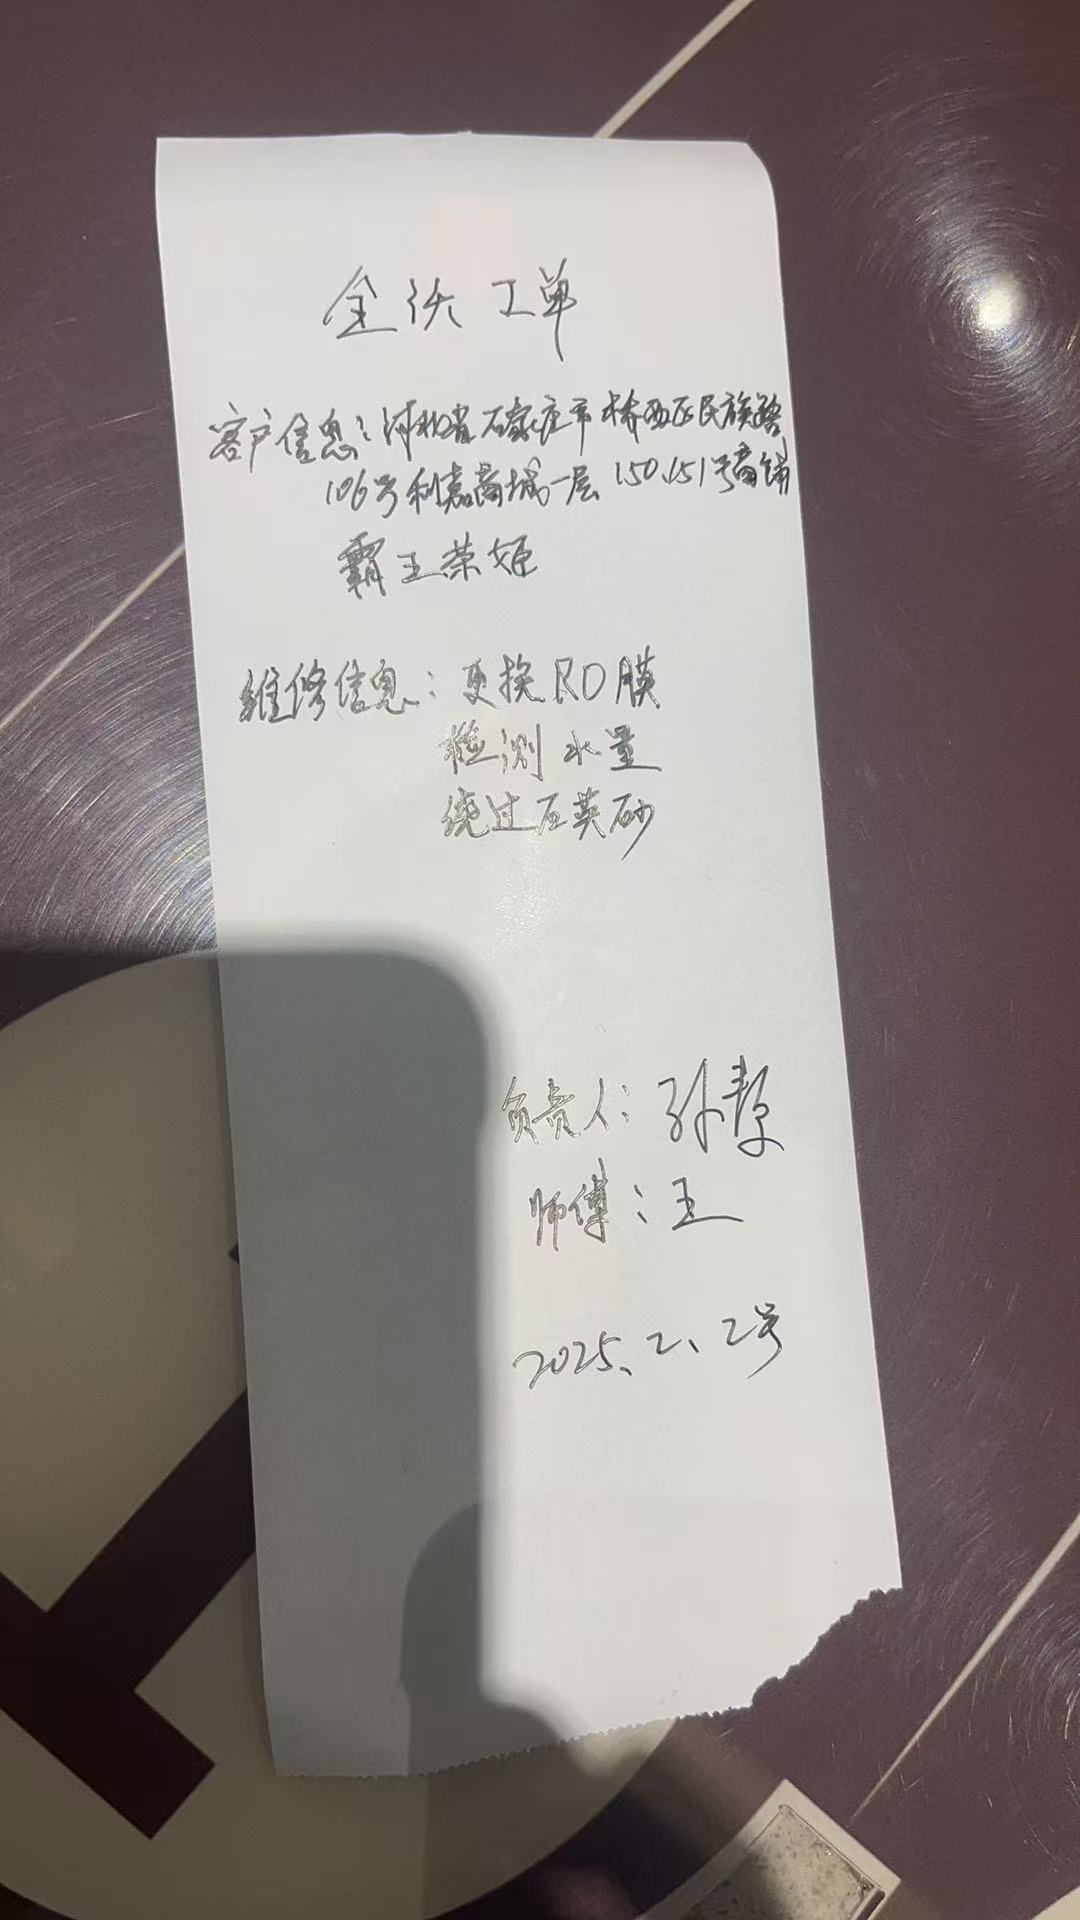 工单
客户信息：河北省石家庄市桥西区民族路
106号利嘉商城一层150、151号商铺
霸王茶姬
维修信息：更换RO膜
检测水量
绕过石英砂
负责人：孙
师傅：王
2025.2.2号